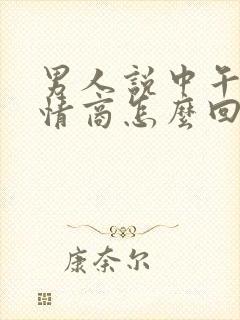 男人說中午
情商怎麼回
康奈尔